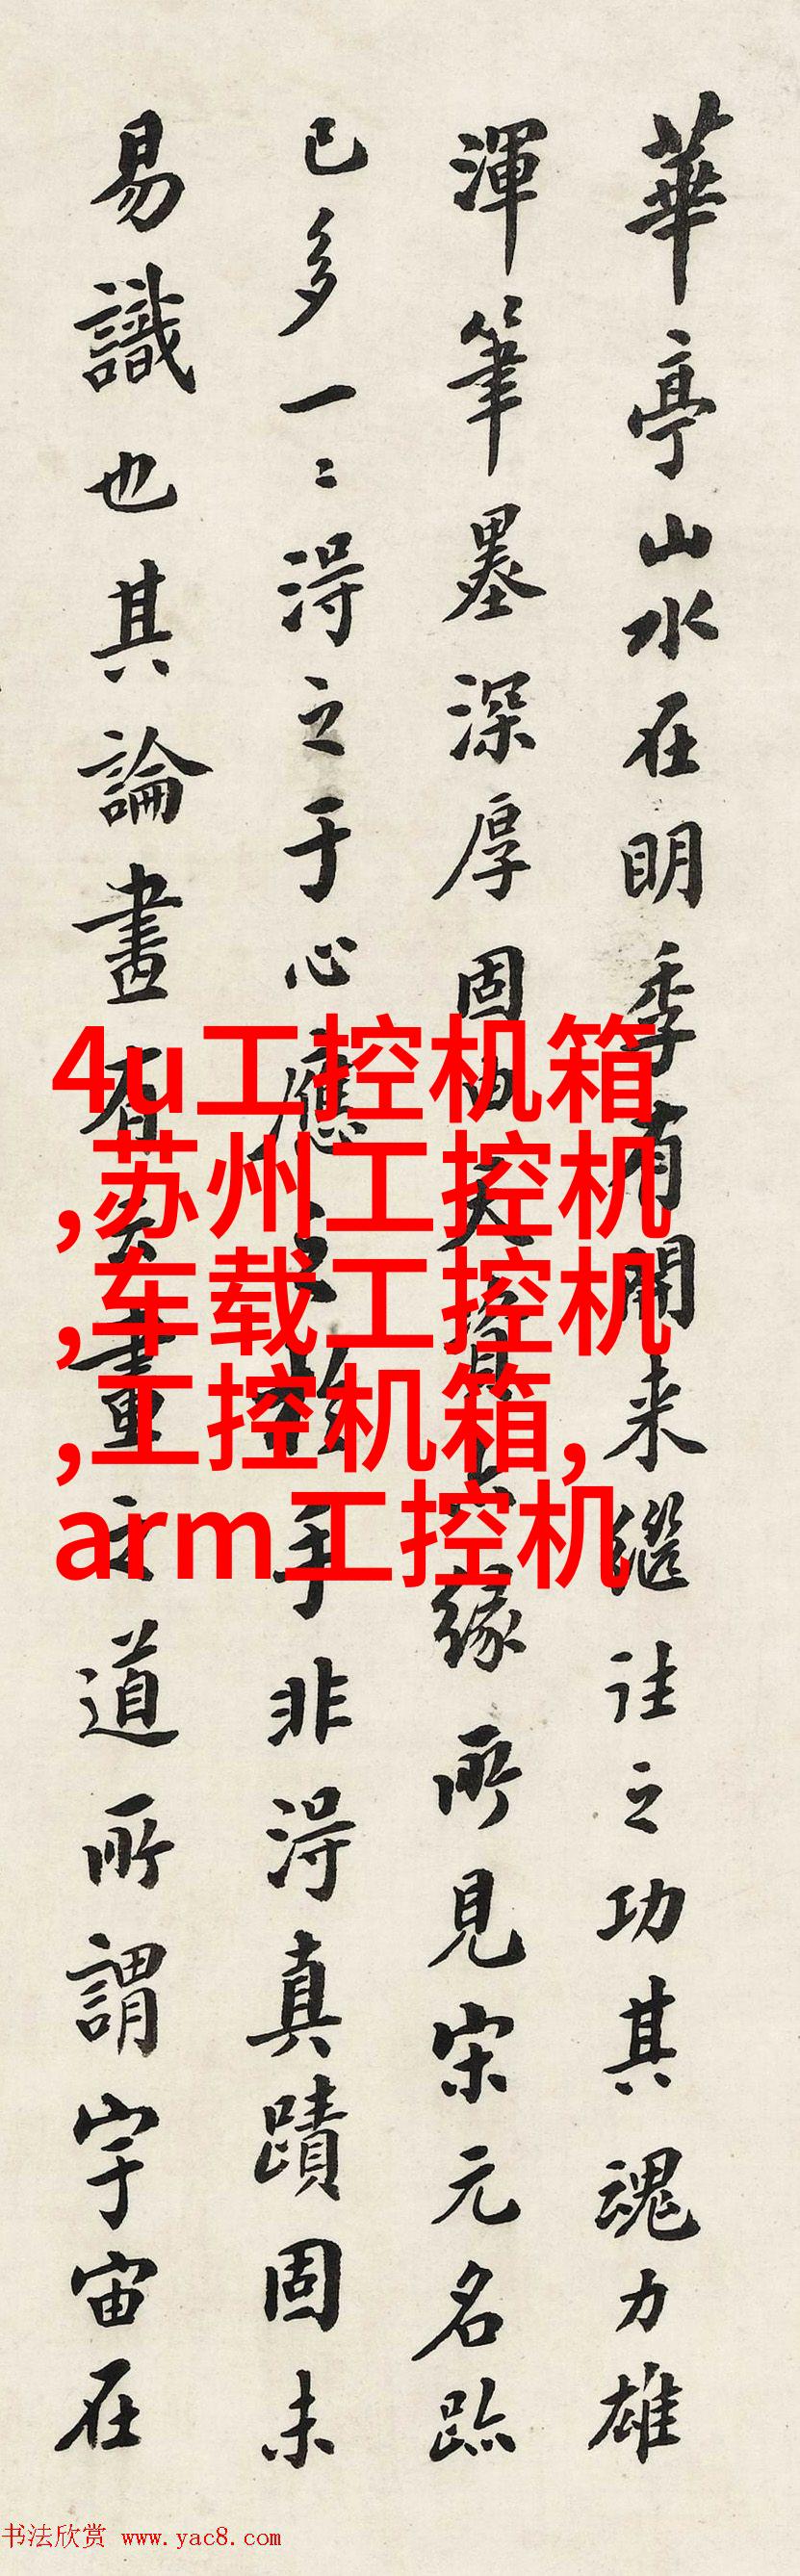 華亭山水在明季有開来繼往之功其魂力雄
渾筆墨深厚固由天資亦緣所見宋元名跡
已多一〻得之于心應之於手非得真蹟固未
易識也其論畫有云畫之道所謂宇宙在
4u工控机箱
,苏州工控机
,车载工控机
,工控机箱,
arm工控机
书法欣赏 www.yac8.com